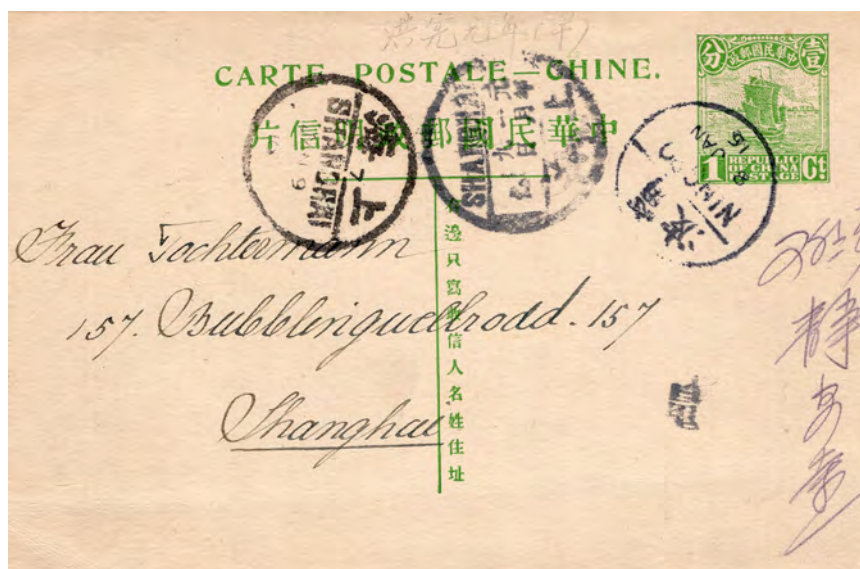 洪宪元年
CARTE POSTALE—CHINE.
中華民國郵政明信片
中華民國郵政
壹分
1 REPUBLIC OF CHINA POSTAGE Ct
SHANGHAI
上海
SHANGHAI
NINGPO
8 JAN 16
邊只寫收信人名姓住址
Frau Tochtermann
157. Bubblingwellroad. 157
Shanghai
靜安寺